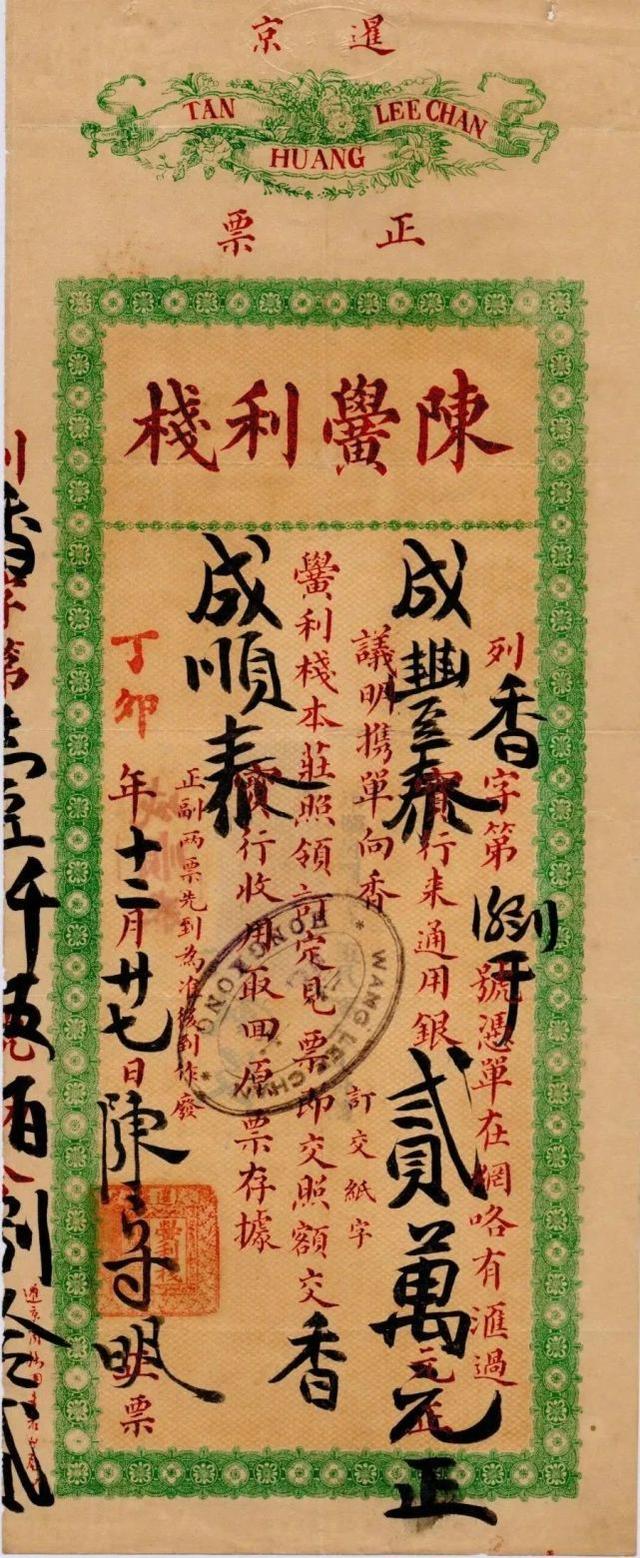 暹京
TAN LEE CHAN
HUANG
正票
陳黌利棧
列香字第 號憑單在網咯有滙過
成豐泰寶行來通用銀貳萬元正
議明携單向香訂交紙字
黌利棧本莊照領訂定見票即交照額交香
成順泰寶行收用取回原票存據
正副两票先到為准後到作廢
丁卯年十二月廿七日陳守明票
香字第壹千五佰捌拾貳
HONGKONG
WANG LEE CHAN